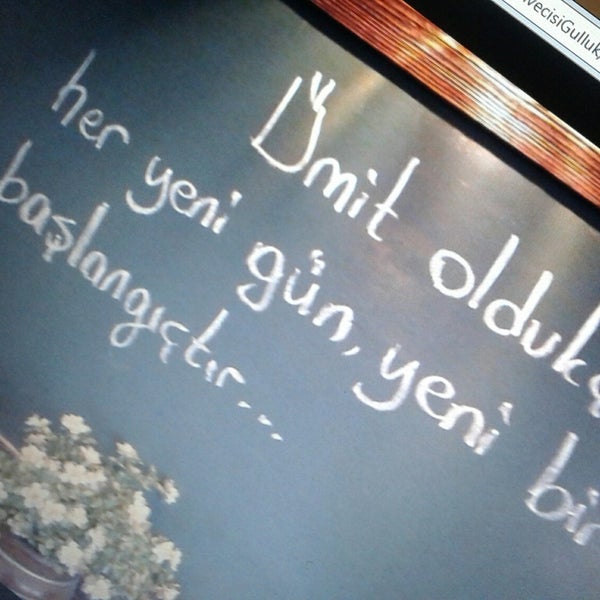 ivecisiGulluk
Ümit oldukç
her yeni gün, yeni bir
başlangıçtır...